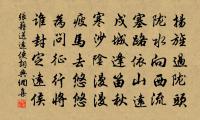 揚旌過隴頭
隴水向西流
塞路依山遠
戍城逢笛秋
寒沙陰漫漫
疲馬去悠悠
為問征行將
誰封定遠侯
張籍送遠使詞典網